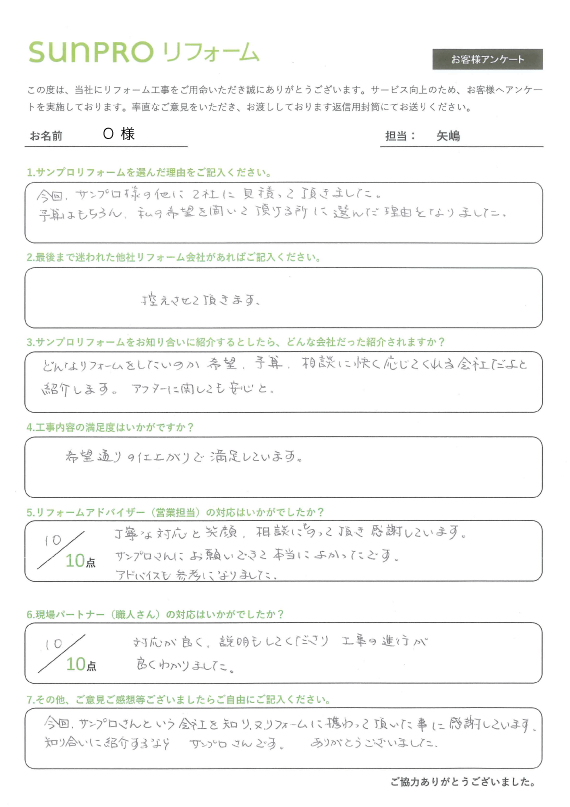 SUNPRO リフォーム
お客様アンケート
この度は、当社にリフォーム工事をご用命いただき誠にありがとうございます。サービス向上のため、お客様へアンケー
トを実施しております。率直なご意見をいただき、お渡ししております返信用封筒にてお送りください。
お名前 O 様 担当： 矢嶋
1.サンプロリフォームを選んだ理由をご記入ください。
今回、サンプロ様の他に2社に見積って頂きました。
予算はもちろん、私の希望を聞いて頂ける所に選んだ理由となりました。
2.最後まで迷われた他社リフォーム会社があればご記入ください。
控えさせて頂きます。
3.サンプロリフォームをお知り合いに紹介するとしたら、どんな会社だった紹介されますか？
どんなリフォームをしたいのか 希望、予算、相談に快く応じてくれる会社だよと
紹介します。 アフターに関しても安心と。
4.工事内容の満足度はいかがですか？
希望通りの仕上がりで満足しています。
5.リフォームアドバイザー（営業担当）の対応はいかがでしたか？
10/10点
丁寧な対応と笑顔、相談にものって頂き感謝しています。
サンプロさんにお願いできて本当によかったです。
アドバイスも参考になりました。
6.現場パートナー（職人さん）の対応はいかがでしたか？
10/10点
対応が良く、説明もしてくださり 工事の進行が
良くわかりました。
7.その他、ご意見ご感想等ございましたらご自由にご記入ください。
今回、サンプロさんという会社を知り、又リフォームに携わって頂いた事に感謝しています。
知り合いに紹介するなら サンプロさんです。 ありがとうございました。
ご協力ありがとうございました。